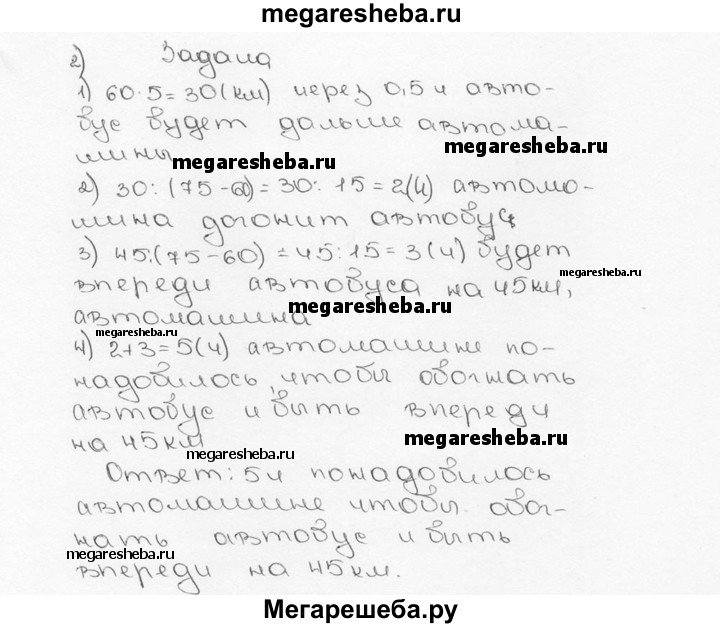 megaresheba.ru
2) Задача
1) 60·5=30(км) через 0,5 ч авто-
бус будет дальше автома-
шины
megaresheba.ru
megaresheba.ru
2) 30:(75-60)=30:15=2(ч) автомо-
шина догонит автобус
3) 45:(75-60)=45:15=3(ч) будет
megaresheba.ru
впереди автобуса на 45км,
megaresheba.ru
автомашина
megaresheba.ru
4) 2+3=5(ч) автомашине по-
надобилось, чтобы обогнать
автобус и быть впереди
на 45км
megaresheba.ru
megaresheba.ru
Ответ: 5ч понадобилось
автомашине чтобы обог-
нать автобус и быть
megaresheba.ru
впереди на 45км.
Мегарешеба.ру